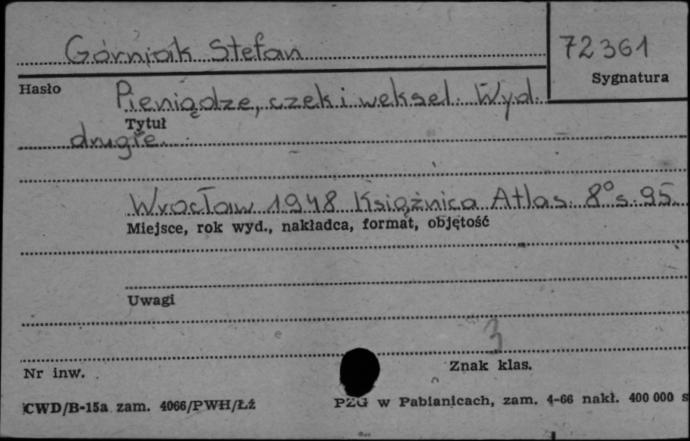 Górniak Stefan
72361
Sygnatura
Hasło
Pieniądze, czek i weksel. Wyd.
Tytuł
drugie.
Wrocław 1948 Książnica Atlas. 8° s. 95.
Miejsce, rok wyd., nakładca, format, objętość
Uwagi
3
Nr inw.
Znak klas.
CWD/B-15a zam. 4066/PWH/Łź
PZG w Pabianicach, zam. 4-66 nakł. 400 000 s